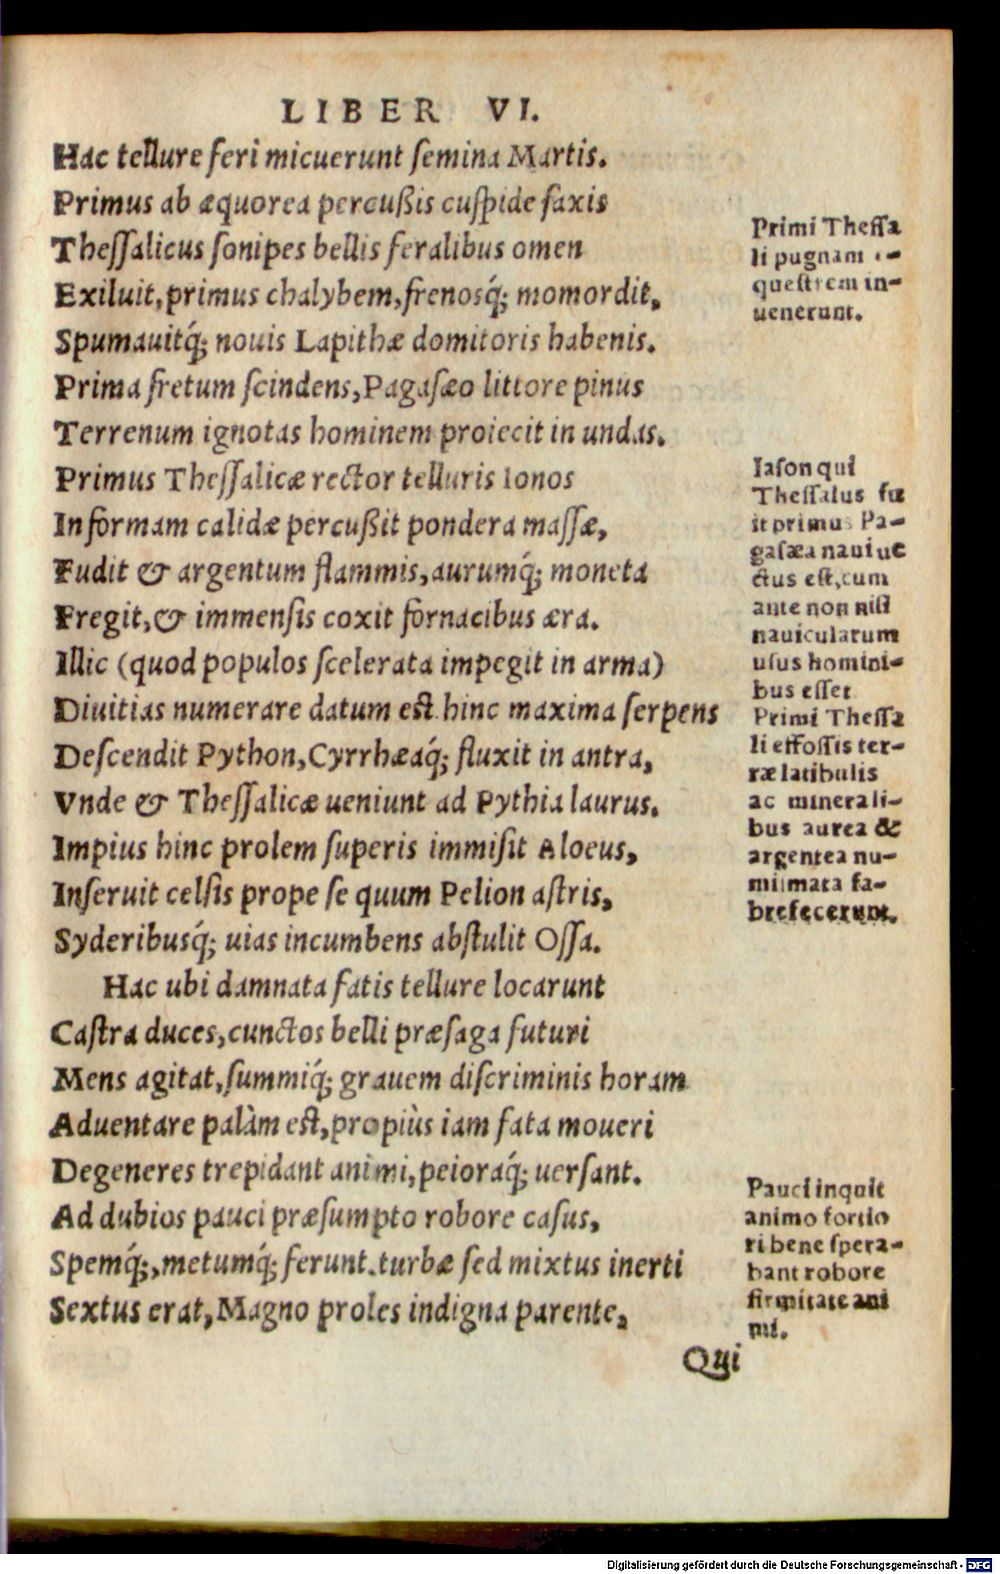 LIBER VI.
Hac tellure feri micuerunt ſemina Martis.
Primus ab æquorea percußis cuſpide ſaxis
Theſſalicus ſonipes bellis feralibus omen
Exiluit, primus chalybem, frenosq́; momordit,
Spumauitq́; nouis Lapithæ domitoris habenis.
Prima fretum ſcindens, Pagaſæo littore pinus
Terrenum ignotas hominem proiecit in undas.
Primus Theſſalicæ rector telluris Ionos
In formam calidæ percußit pondera maſſæ,
Fudit & argentum flammis, aurumq́; moneta
Fregit, & immenſis coxit fornacibus æra.
Illic (quod populos ſcelerata impegit in arma)
Diuitias numerare datum eſt. hinc maxima ſerpens
Deſcendit Python, Cyrrhæaq́; fluxit in antra,
Vnde & Theſſalicæ ueniunt ad Pythia laurus.
Impius hinc prolem ſuperis immiſit Aloeus,
Inſeruit celſis prope ſe quum Pelion aſtris,
Syderibusq́; uias incumbens abſtulit Oſſa.
Hac ubi damnata fatis tellure locarunt
Caſtra duces, cunctos belli præſaga futuri
Mens agitat, ſummiq́; grauem diſcriminis horam
Aduentare palàm eſt, propiùs iam fata moueri
Degeneres trepidant animi, peioraq́; uerſant.
Ad dubios pauci præſumpto robore caſus,
Spemq́;, metumq́; ferunt. turbæ ſed mixtus inerti
Sextus erat, Magno proles indigna parente,
Qui
Primi Theſſa
li pugnam e-
queſtrem in-
uenerunt.
Iaſon qui
Theſſalus fu
it primus Pa-
gaſæa naui ue
ctus eſt, cum
ante non niſi
nauicularum
uſus homini-
bus eſſet
Primi Theſſa
li effoſſis ter-
ræ latibulis
ac minerali-
bus aurea &
argentea nu-
miſmata fa-
brefecerunt.
Pauci inquit
animo fortio
ri bene ſpera-
bant robore
firmitate ani
mi.
Digitalisierung gefördert durch die Deutsche Forschungsgemeinschaft - DFG